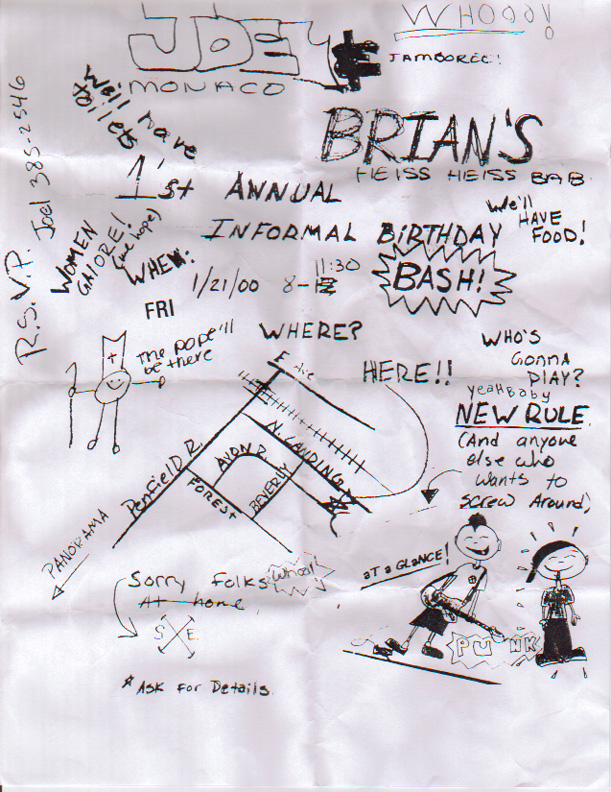 WHOOO!
JOE
MONACO
JAMBOREE!
We'll have
toilets
BRIAN'S
HEISS HEISS BAB
1'st ANNUAL
INFORMAL BIRTHDAY
BASH!
We'll
HAVE
FOOD!
R.S.V.P. Joel 385-2546
WOMEN
GALORE!
(we hope)
WHEN:
1/21/00 8-
11:30
FRI
The pope'll
be there
WHERE?
HERE!!
WHO'S
GONNA
PLAY?
yeaHBaby
NEW RULE
(And anyone
else who
wants to
screw Around)
E. Ave
N. LANDING
Penfield DR.
AVON
FOREST
BEVERLY
PANORAMA
Sorry folks
At home
S E
* ASK FOR DetaiLs.
aT a GLaNCE!
PUNK